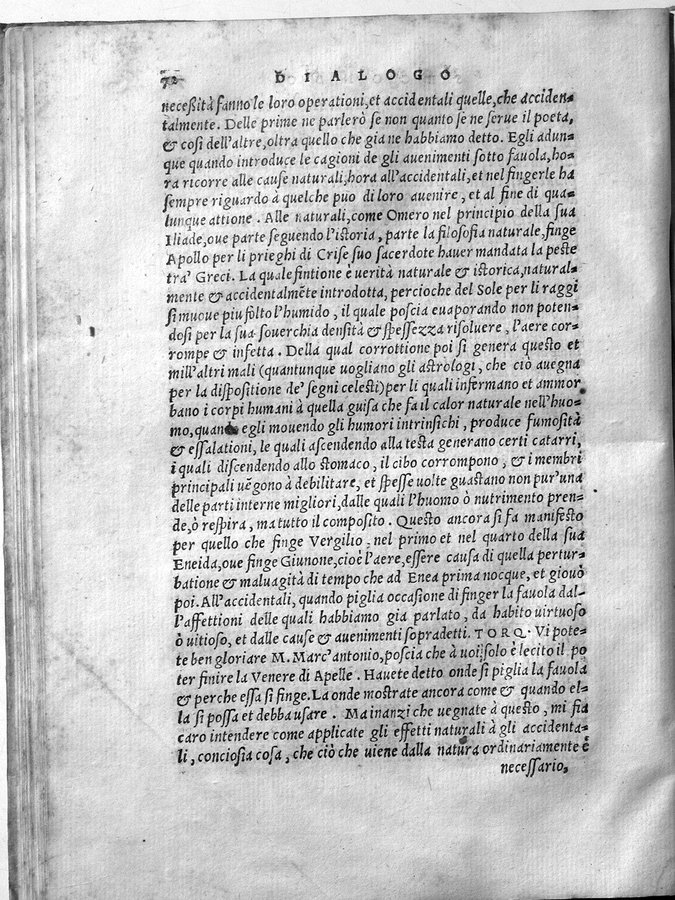 72 DIALOGO
neceßità fanno le loro operationi, et accidentali quelle, che acciden=
talmente. Delle prime ne parlerò se non quanto se ne serue il poeta,
& così dell'altre, oltra quello che gia ne habbiamo detto. Egli adun=
que quando introduce le cagioni de gli auenimenti sotto fauola, ho=
ra ricorre alle cause naturali, hora all'accidentali, et nel fingerle ha
sempre riguardo à quelche puo di loro auenire, et al fine di qua=
lunque attione. Alle naturali, come Omero nel principio della sua
Iliade, oue parte seguendo l'istoria, parte la filosofia naturale, finge
Apollo per li prieghi di Crise suo sacerdote hauer mandata la peste
tra' Greci. La quale fintione è uerità naturale & istorica, natural=
mente & accidentalmẽte introdotta, percioche del Sole per li raggi
si muoue piu folto l'humido, il quale poscia euaporando non poten=
dosi per la sua souerchia densità & spessezza risoluere, l'aere cor=
rompe & infetta. Della qual corrottione poi si genera questo et
mill'altri mali (quantunque uogliano gli astrologi, che ciò auegna
per la dispositione de' segni celesti) per li quali infermano et ammor
bano i corpi humani à quella guisa che fa il calor naturale nell'huo=
mo, quando egli mouendo gli humori intrinsichi, produce fumosità
& essalationi, le quali ascendendo alla testa generano certi catarri,
i quali discendendo allo stomaco, il cibo corrompono, & i membri
principali uẽgono à debilitare, et spesse uolte guastano non pur'una
delle parti interne migliori, dalle quali l'huomo ò nutrimento pren=
de, ò respira, ma tutto il composito. Questo ancora si fa manifesto
per quello che finge Vergilio, nel primo et nel quarto della sua
Eneida, oue finge Giunone, cioè l'aere, essere causa di quella pertur=
batione & maluagità di tempo che ad Enea prima nocque, et giouò
poi. All'accidentali, quando piglia occasione di finger la fauola dal=
l'affettioni delle quali habbiamo gia parlato, da habito uirtuoso
ò uitioso, et dalle cause & auenimenti sopradetti. TORQ. Vi pote=
te ben gloriare M. Marc'antonio, poscia che à uoi solo è lecito il po
ter finire la Venere di Apelle. Hauete detto onde si piglia la fauola
& perche essa si finge. La onde mostrate ancora come & quando el=
la si possa et debba usare. Ma inanzi che uegnate à questo, mi fia
caro intendere come applicate gli effetti naturali à gli accidenta=
li, conciosia cosa, che ciò che uiene dalla natura ordinariamente è
necessario,